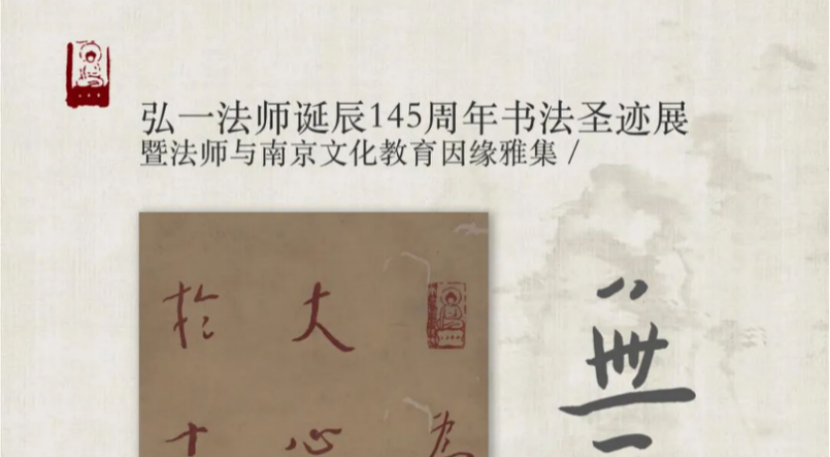 弘一法师诞辰145周年书法圣迹展
暨法师与南京文化教育因缘雅集 /
為
大心
於十
無